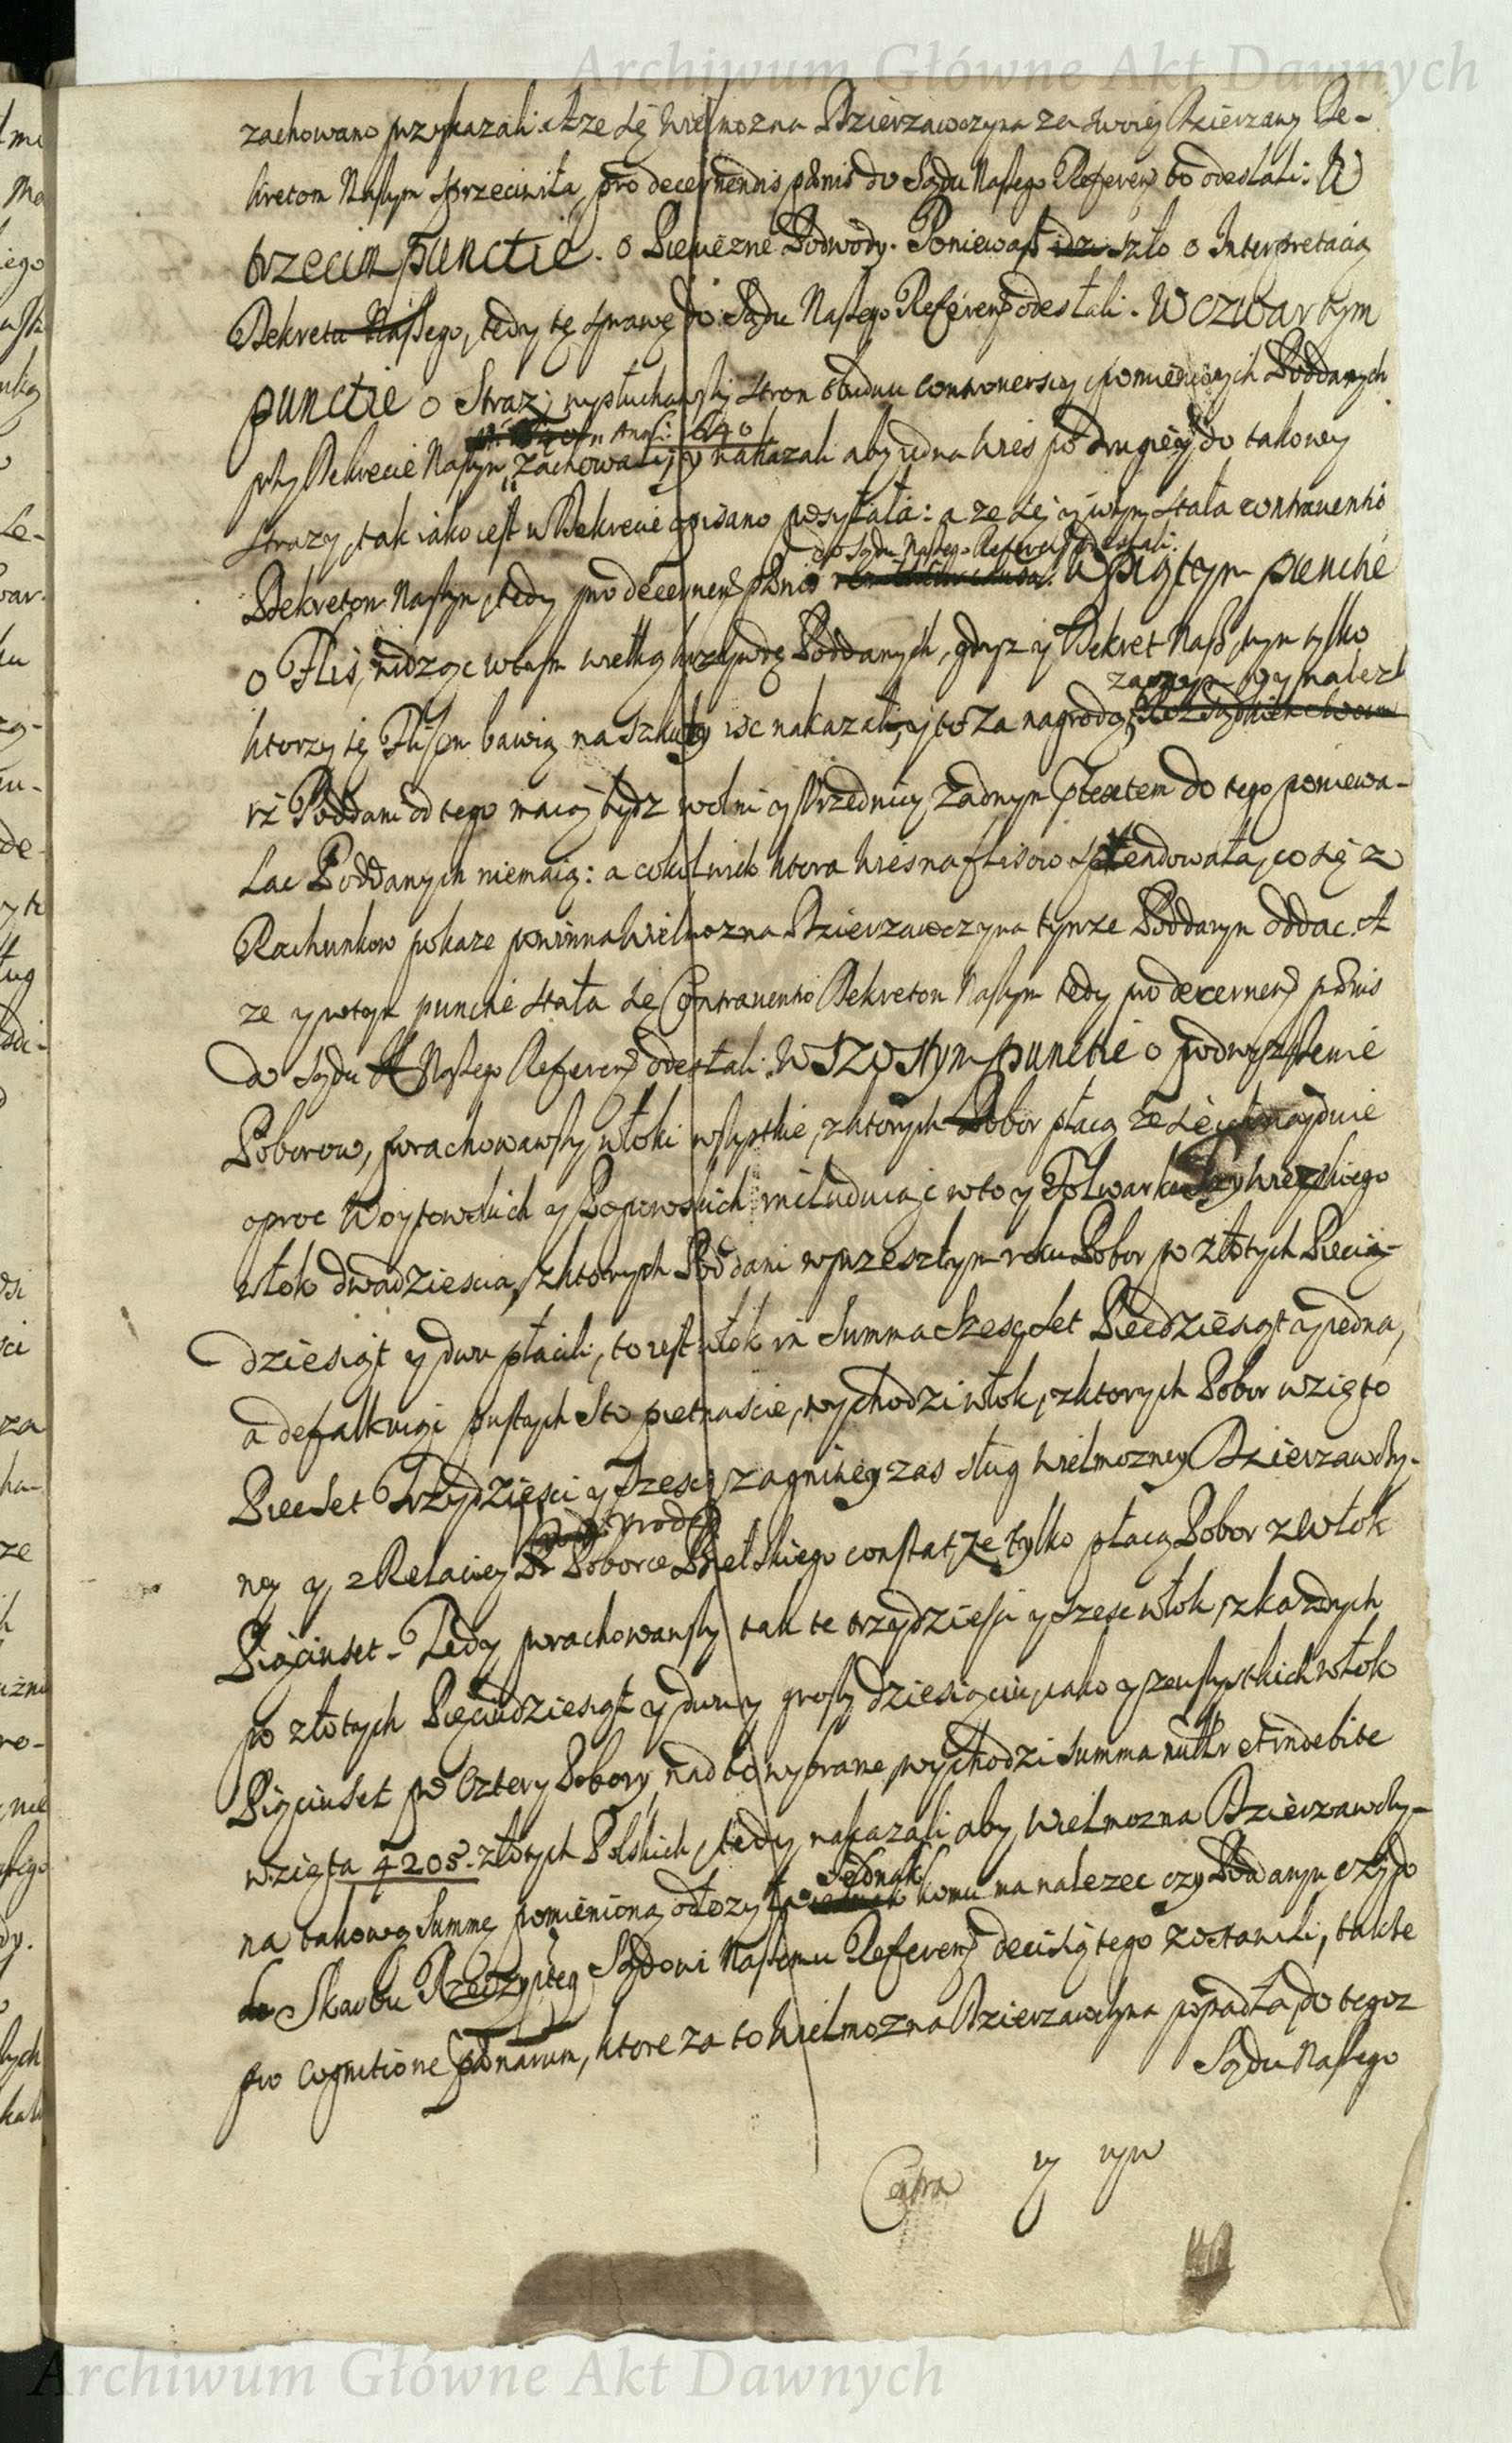 Archiwum Główne Akt Dawnych
zachowano przykazali. A ze się Wielmozna Dzierzawczyna za swoiey Dzierzawy De-
kretom Naszym sprzeciwiła, pro decernendis pænis do Sądu Naszego Referen. to odesłali. W
trzecim punctie. o Pieniezne Podwody. Poniewasz idz szło o Interpretacią
Dekretu Naszego, tedy tę sprawę do Sądu Naszego Referen. odesłali. W czwartym
punctie o Straz, wysłuchawszy stron obudwu controversiy pomienionych Poddanych
Anni 1640
przy Dekrecie Naszym zachowali, y nakazali aby iedna wies po drugiey do takowey
strazy, tak iako iest w Dekrecie opisano posyłała: a ze się y w tym stała contraventio
do Sądu Naszego Referen. odesłali.
Dekretom Naszym, tedy pro decernen. pænis W piątym punctie
o Flis, widząc w tym wielką krzywdę Poddanych, gdysz y Dekret Nasz tym tylko
zaczym wynalezli
ktorzy się Flisem bawią na szkuty isc nakazali, y to za nagrodą,
iz Poddani od tego maią bydz wolni y Urzednicy zadnym prætextem do tego poniewa-
lac Poddanych niemaią: a cokolwiek ktora wies na flisow spendowała, co się z
Rachunkow pokaze powinna Wielmozna Dzierzawczyna tymze Poddanym oddac. A
ze y w tym punctie stała się Contraventio Dekretom Naszym tedy pro decernen. pænis
do Sądu Naszego Referen. odesłali. W SZOStym punctie o podwyzszenie
Poborow, porachowawszy włoki wszystkie, z ktorych Pobor płacą ze się ich nayduie
oproc Woytowskich y Popowskich includuiąc w to y Folwarku
włok dwadziescia, z ktorych Poddani w przeszłym roku Pobor po złotych Piecią-
dziesiąt y dwu płacili, to iest włok in Summa Szesc Set Piecdziesiąt y iedna,
a defalkuigi pustych Sto pietnascie, wychodzi włok, z ktorych Pobor wzięto
Piecset Trzydziesci y szesc, zas sług Wielmozney Dzierzawczy-
ney y z Relaciey Poborce Bielskiego constat, ze tylko płacą Pobor z włok
Pięciuset. Tedy porachowawszy tak te trzydziesci y szesc włok, z kazdych
po złotych Pięciudziesiąt y dwu y groszy dziesiąciu, iako y ze wszystkich włok
Pięciuset po Cztery Pobory nad to wybrane, wychodzi Summa et indebite
wzięta 4205. złotych Polskich, tedy nakazali aby Wielmozna Dzierzawczy-
Jednak
na takową Summę pomienioną odłozyła komu ma nalezec czy Poddanym czy do
do Skarbu Rzeczyptey Sądowi Naszemu Referen. decisią tego zostawili, takze
pro cognitione pænarum, ktore za to Wielmozna Dzierzawczyna popadła, do tegoz
Sądu Naszego
Archiwum Główne Akt Dawnych